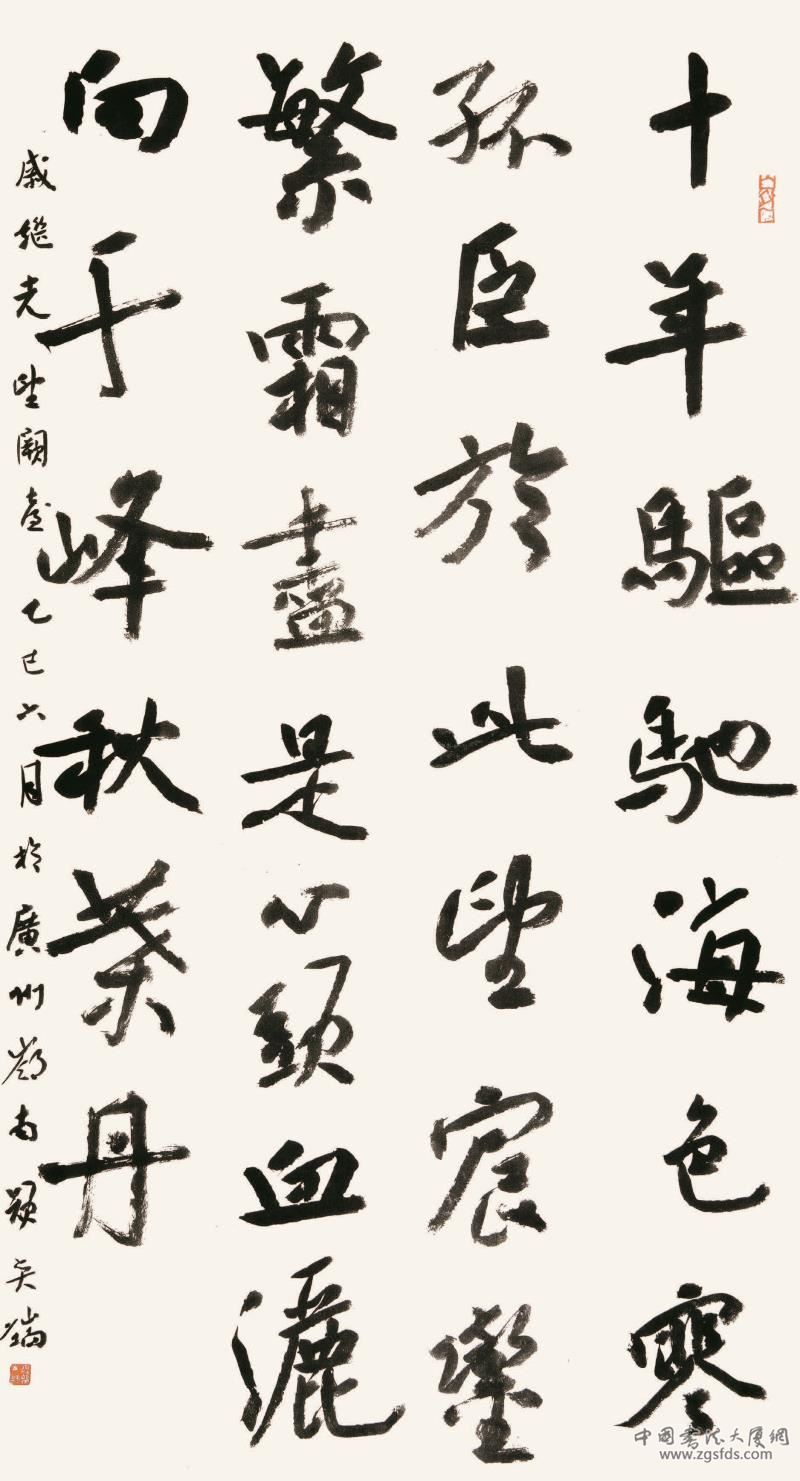 十年驅馳海色寒
孤臣於此望宸鑾
繁霜盡是心頭血灑
向千峰秋葉丹
戚繼光望闕臺乙巳六月於廣州嶺南
中國書法大廈網
www.zgsfds.com